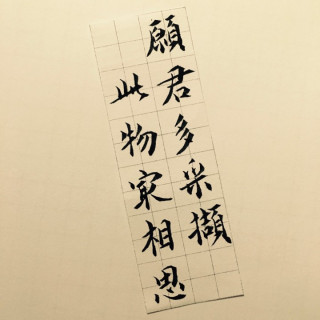 願君多采擷
此物冣相思